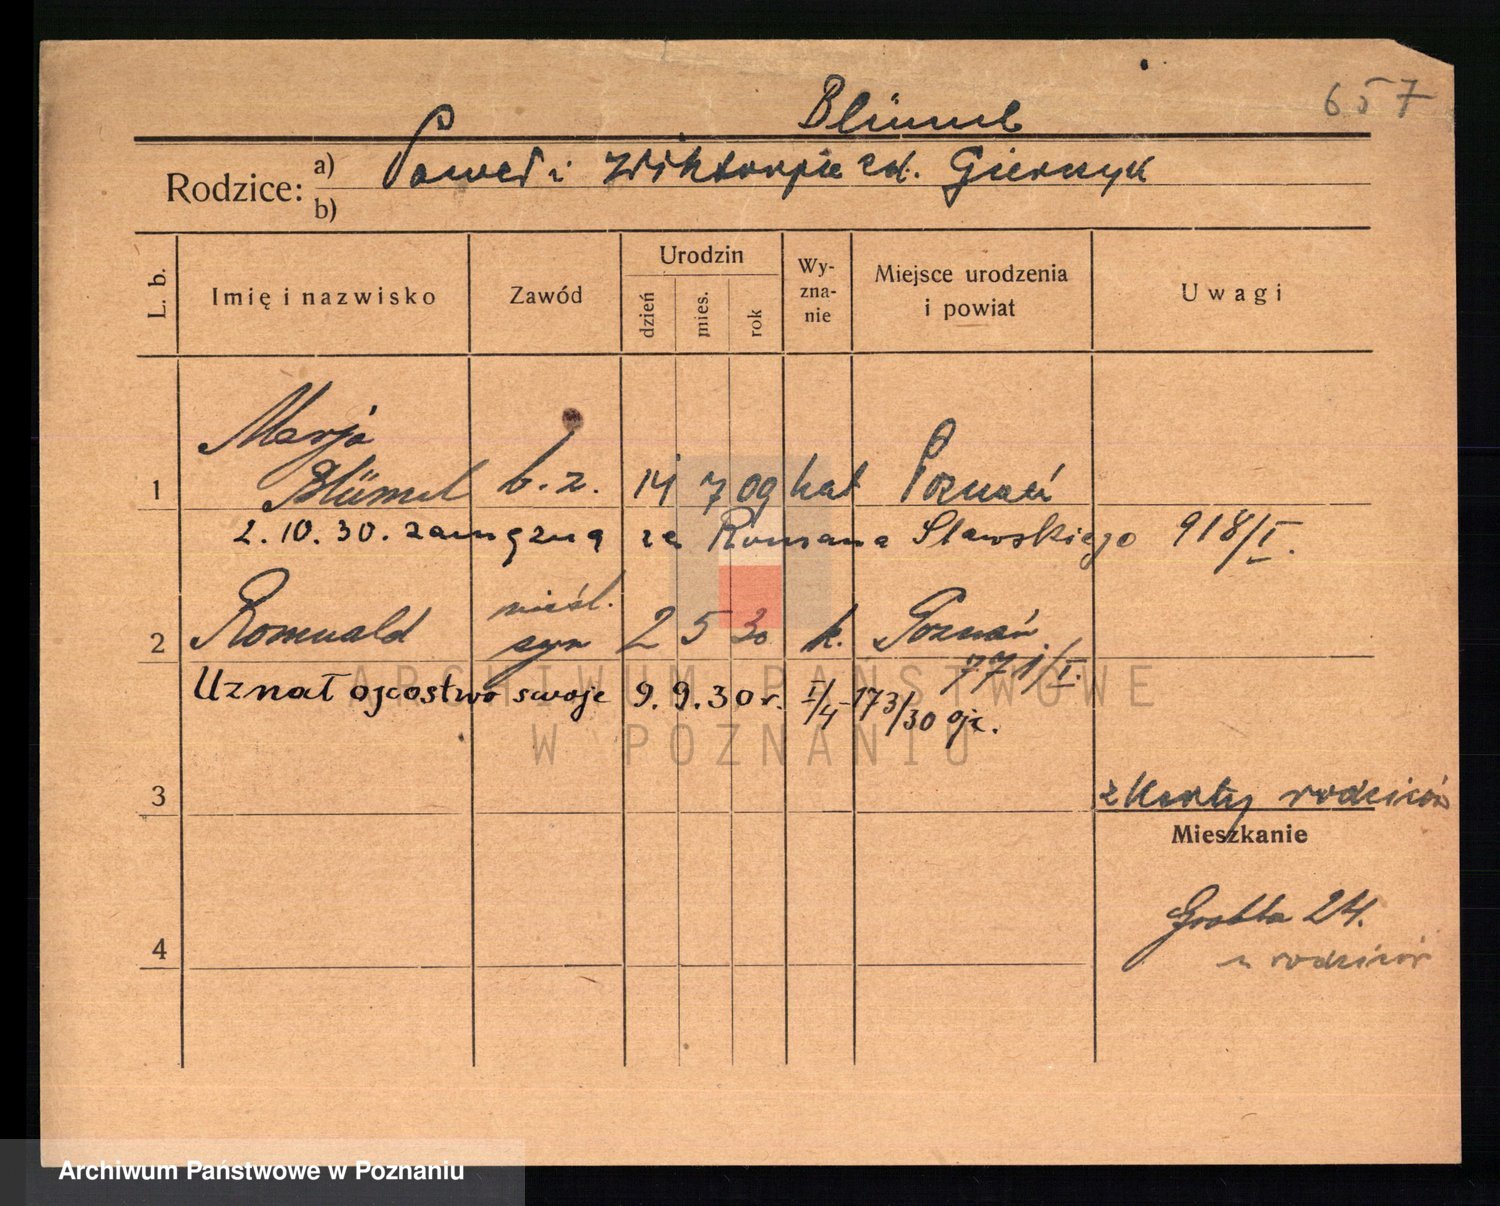 657
Blümel
Rodzice: a) Paweł i Wiktorja zd.
b)
L. b.
Imię i nazwisko
Zawód
Urodzin
dzień
mies.
rok
Wy-
zna-
nie
Miejsce urodzenia
i powiat
Uwagi
Marja
1 Blümel b. z. 14 7 09 kat Poznań
2.10.30. zamężna za Romana Sławskiego 918/I.
nieśl.
2 Romuald syn 2 5 30 k. Poznań
771/I.
Uznał ojcostwo swoje 9.9.30 r. I/4-173/30 ojc.
ARCHIWUM PAŃSTWOWE
W POZNANIU
3
z Karty rodziców
Mieszkanie
Grobla 24.
u rodziców
4
Archiwum Państwowe w Poznaniu